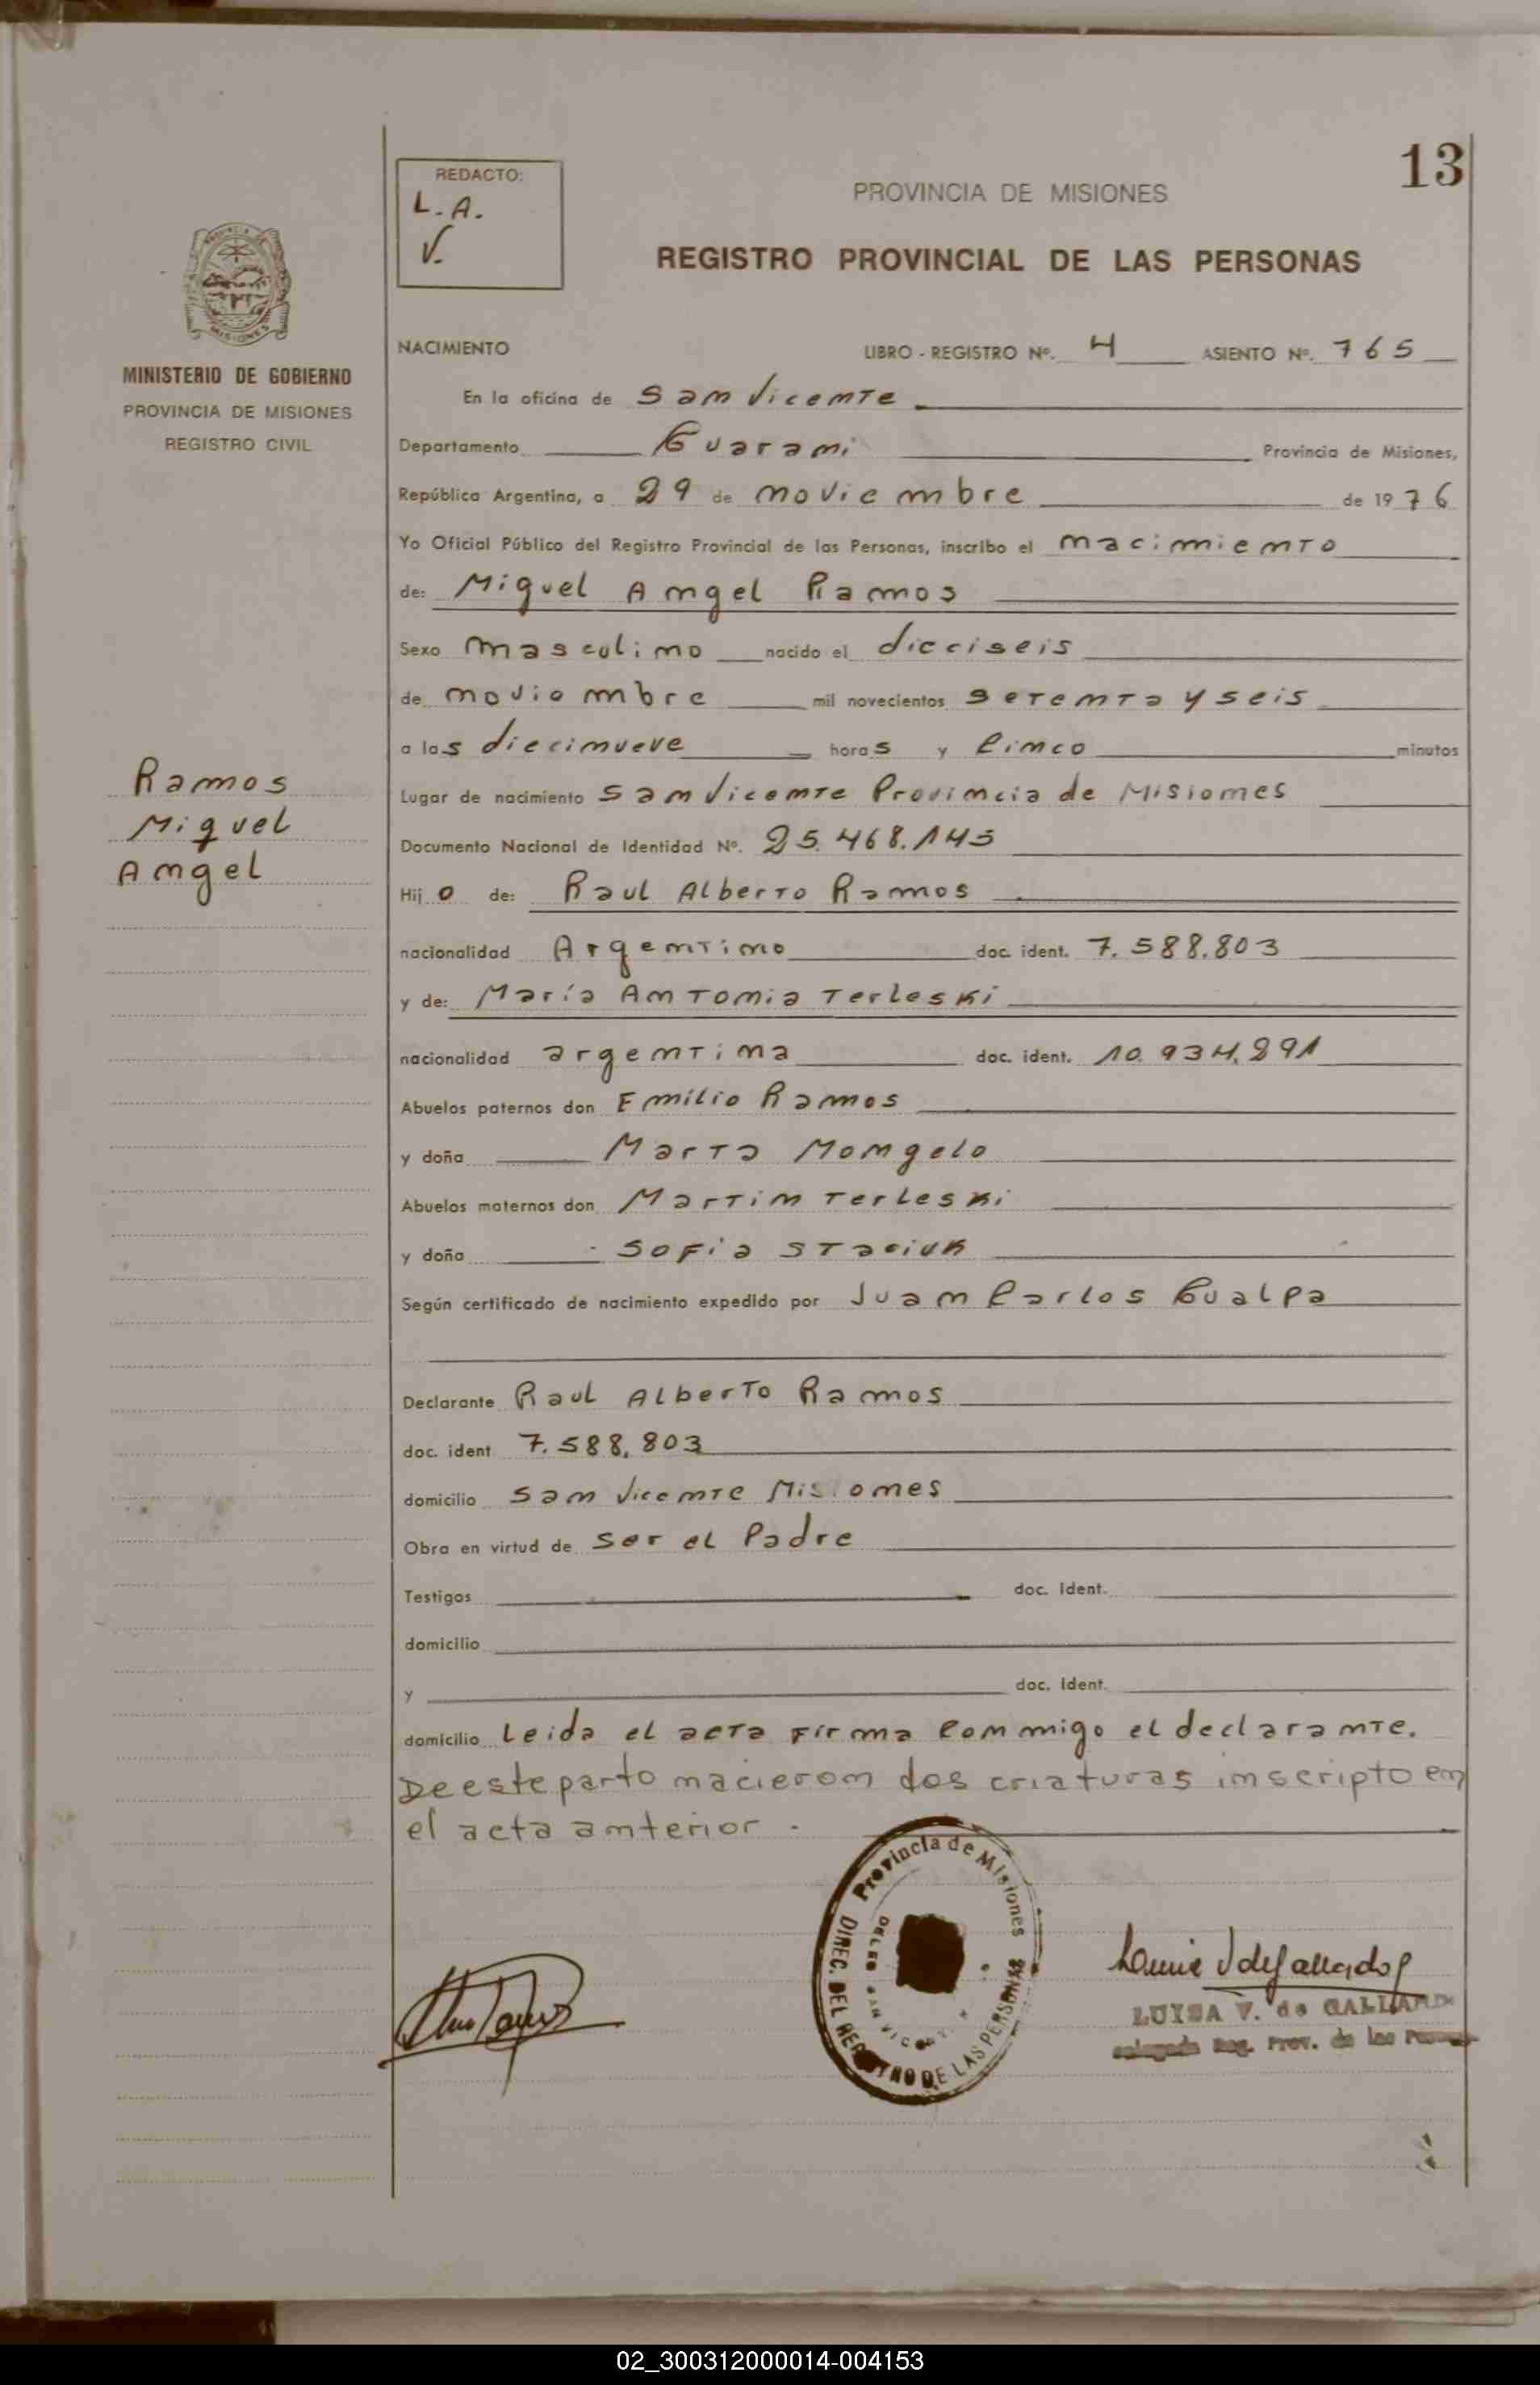 13
REDACTO:
L. A.
V.
PROVINCIA DE MISIONES
REGISTRO PROVINCIAL DE LAS PERSONAS
MINISTERIO DE GOBIERNO
PROVINCIA DE MISIONES
REGISTRO CIVIL
Ramos
Miguel
Angel
NACIMIENTO LIBRO - REGISTRO Nº. 4 ASIENTO Nº. 765
En la oficina de San Vicente
Departamento Guarani Provincia de Misiones,
República Argentina, a 29 de noviembre de 1976
Yo Oficial Público del Registro Provincial de las Personas, inscribo el nacimiento
de: Miguel Angel Ramos
Sexo masculino nacido el dieciseis
de noviembre mil novecientos setenta y seis
a las diecinueve horas y Cinco minutos
Lugar de nacimiento San Vicente Provincia de Misiones
Documento Nacional de Identidad Nº. 25.468.145
Hijo de: Raul Alberto Ramos
nacionalidad Argentino doc. ident. 7.588.803
y de: María Antonia Terleski
nacionalidad argentina doc. ident. 10.934.291
Abuelos paternos don Emilio Ramos
y doña Marta Mongelo
Abuelos maternos don Martin Terleski
y doña Sofia Staciuk
Según certificado de nacimiento expedido por Juan Carlos Gualpa
Declarante Raul Alberto Ramos
doc. ident 7.588.803
domicilio San Vicente Misiones
Obra en virtud de ser el Padre
Testigos doc. Ident.
domicilio
y doc. Ident.
domicilio Leida el acta firma Conmigo el declarante.
De este parto nacieron dos criaturas inscripto en
el acta anterior.
Provincia de Misiones
DIREC. DEL REGISTRO DE LAS PERSONAS
LUISA V. de GALLARDO
Delegada Reg. Prov. de las Personas
02_300312000014-004153